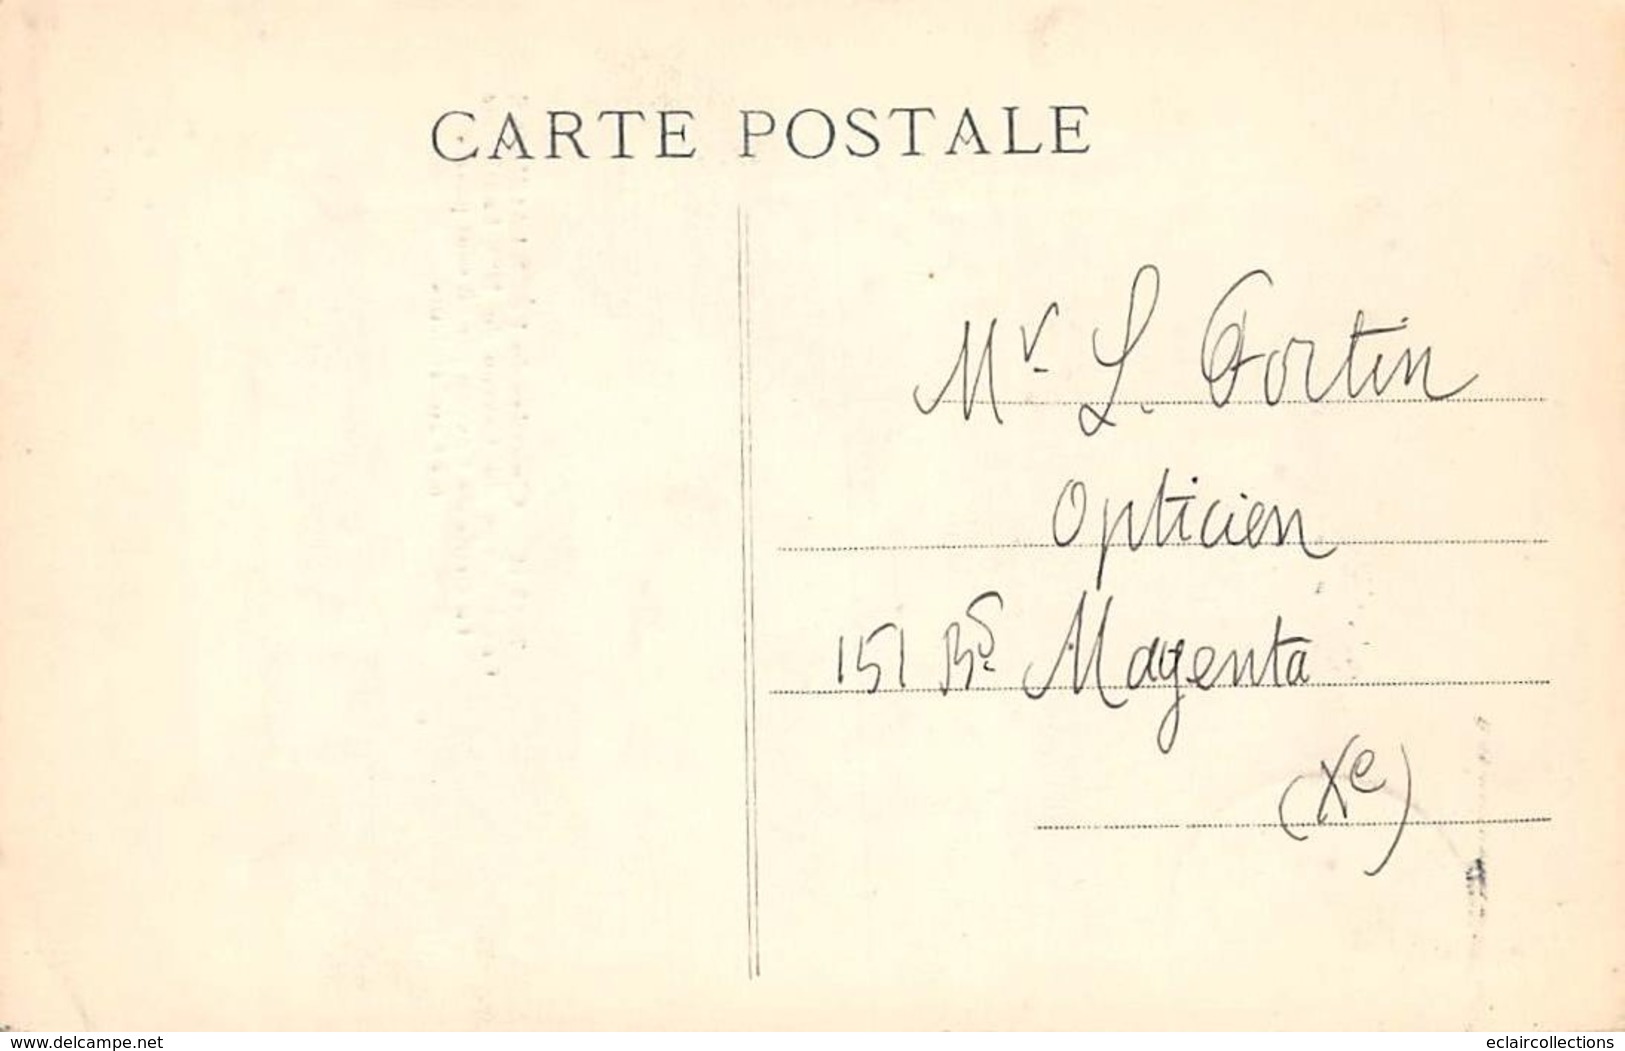 CARTE POSTALE
Mr. L. Fortin
Opticien
151 Bd. Magenta
(Xe)
www.delcampe.net
eclaircollections